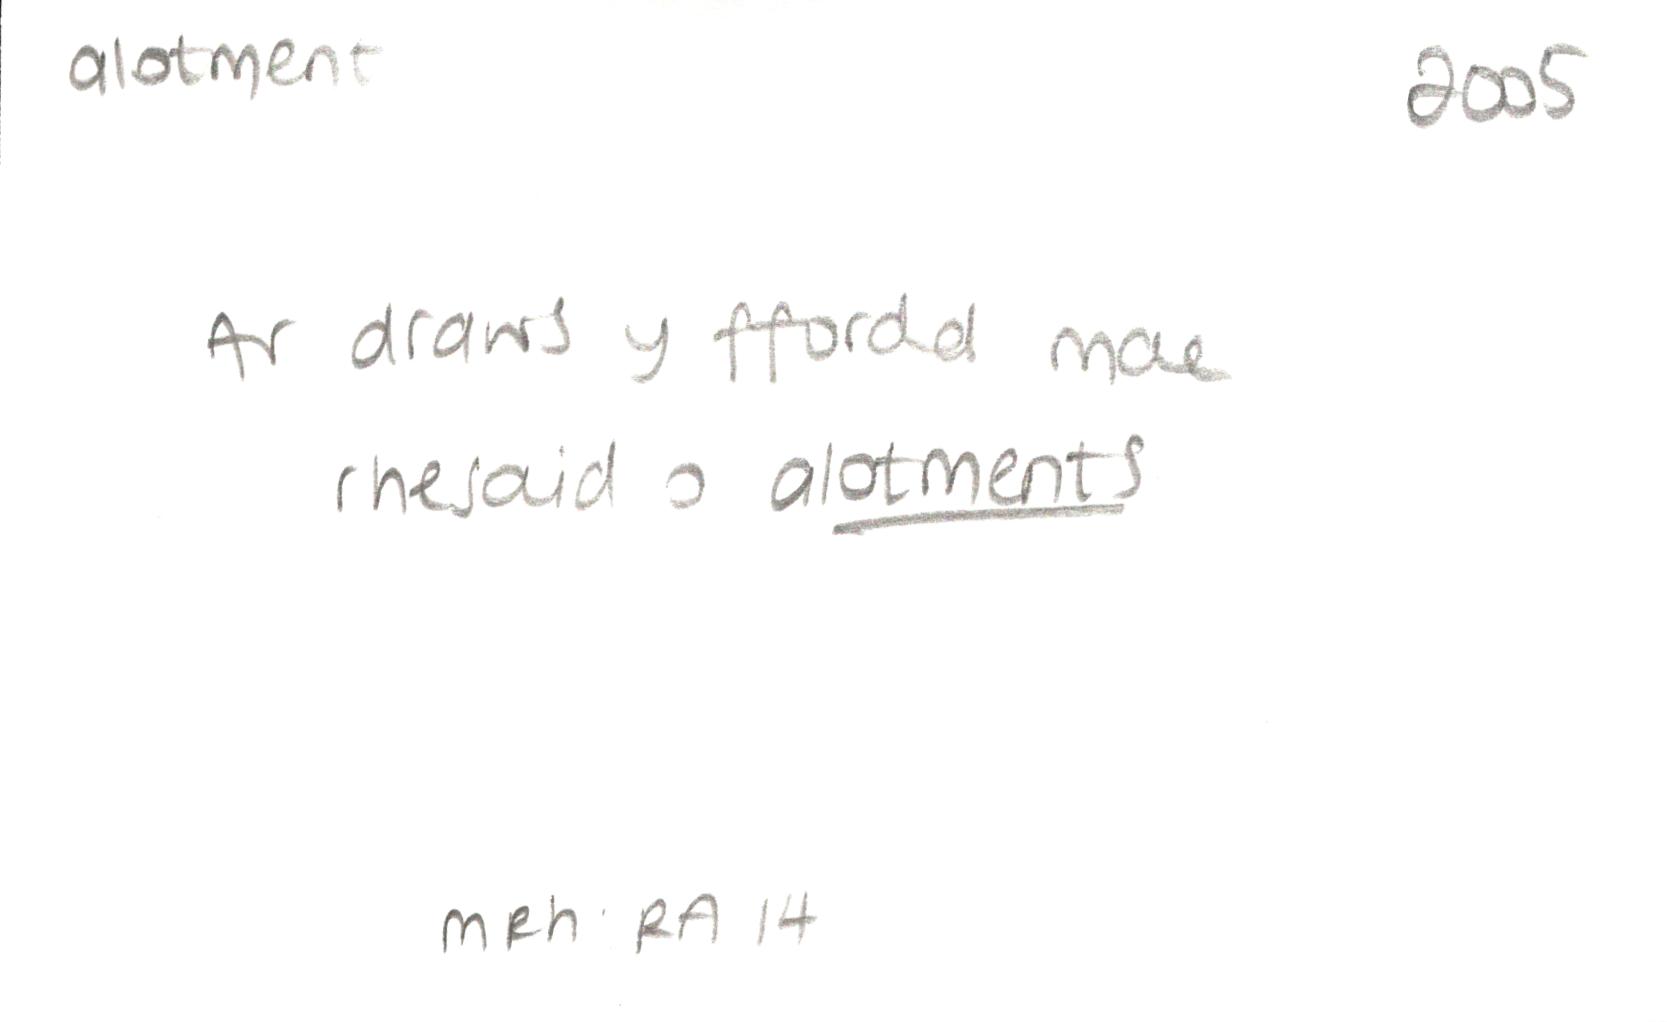 alotment 2005
Ar draws y ffordd mae
rhesaid o alotments
MRh: RA 14